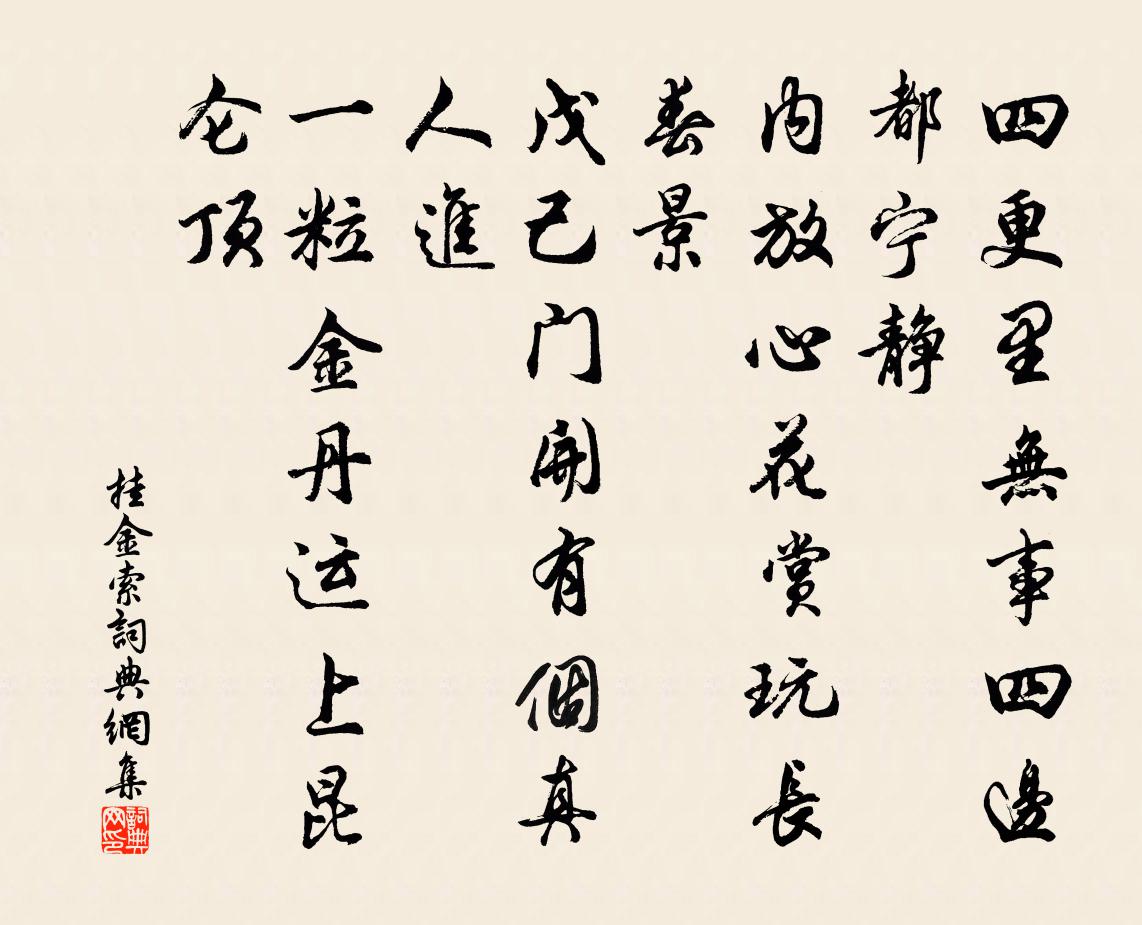 四更里無事四邊
都宁静
内放心花赏玩長
春景
戊己门開有個真
人進
一粒金丹运上昆
仑顶
挂金索詞典網集
詞典
网印